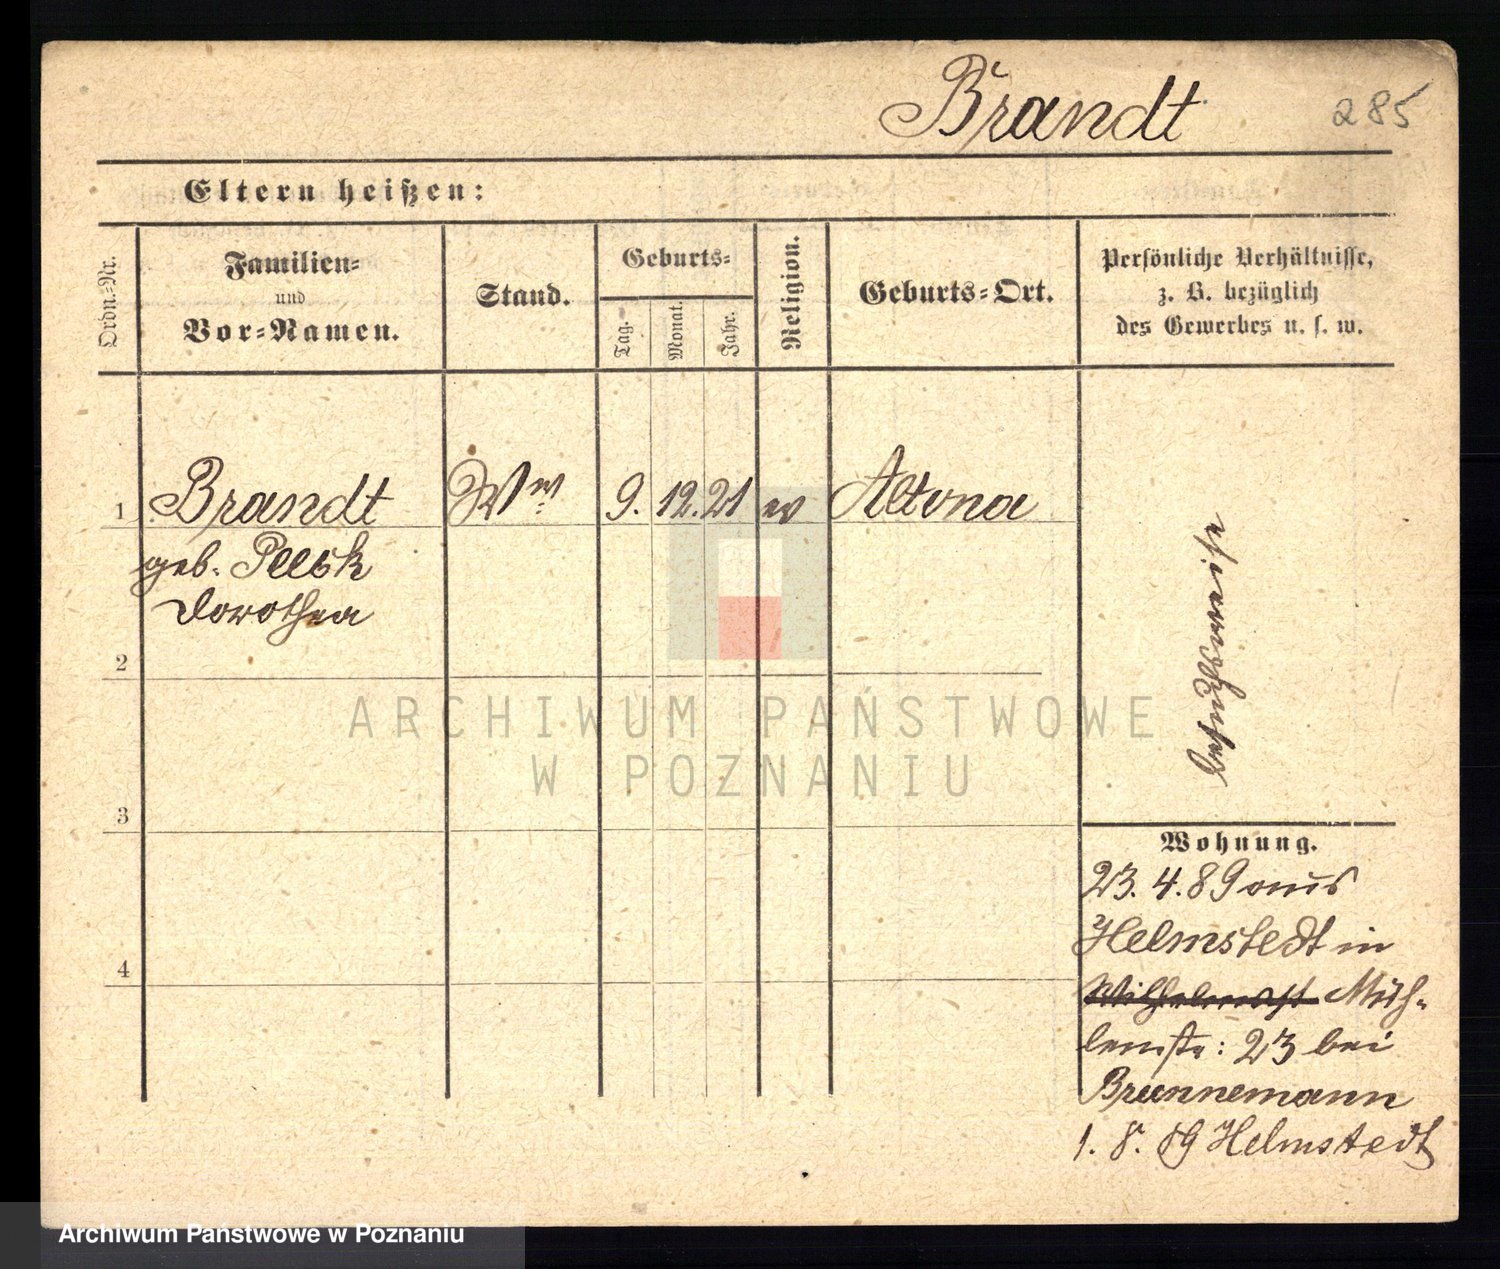 Brandt 285
Eltern heißen:
Ordn.-Nr.
Familien-
und
Vor-Namen.
Stand.
Geburts-
Tag.
Monat.
Jahr.
Religion.
Geburts-Ort.
Persönliche Verhältnisse,
z. B. bezüglich
des Gewerbes u. s. w.
1 Brandt Ww 9. 12. 21 ev Altona
geb.
Dorothea
besuchsweise
2
3
4
Wohnung.
23. 4. 89 aus
Helmstedt in
Wilhelmst Müh-
lenstr: 23 bei
Brunnemann
1. 8. 89 Helmstedt
ARCHIWUM PAŃSTWOWE
W POZNANIU
Archiwum Państwowe w Poznaniu